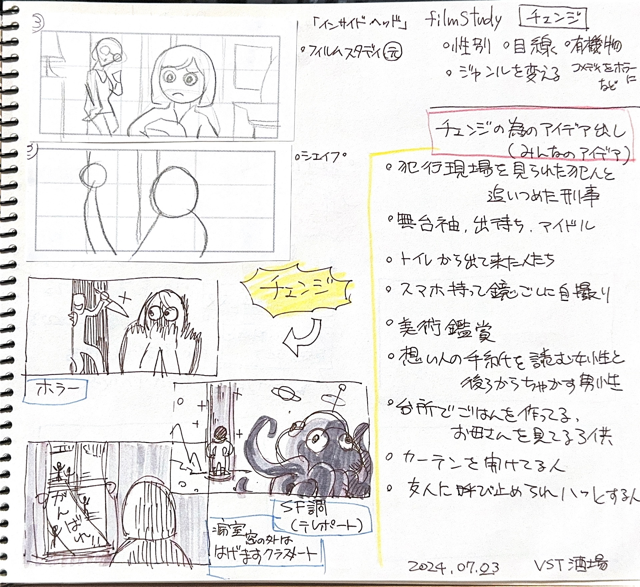 ③
「インサイドヘッド」
filmStudy チェンジ
◦フィルムスタディ元
◦性別 ◦目線 ◦有機物
◦ジャンルを変える コメディをホラーに
など
3
◦シェイプ
チェンジの為のアイデア出し
(みんなのアイデア)
◦犯行現場を見られた犯人と
追いつめた刑事
◦舞台袖、出待ち、アイドル
◦トイレから出て来た人たち
◦スマホ持って鏡ごしに自撮り
◦美術鑑賞
◦想い人の手紙を読む女性と
後ろからちゃかす男性
◦台所でごはんを作ってる、
お母さんを見てる子供
◦カーテンを開けてる人
◦友人に呼び止められハッとする人
チェンジ
ホラー
SF調
(テレポート)
がんばれ!!
病室 窓の外は
はげますクラスメート
2024.07.03 VST酒場